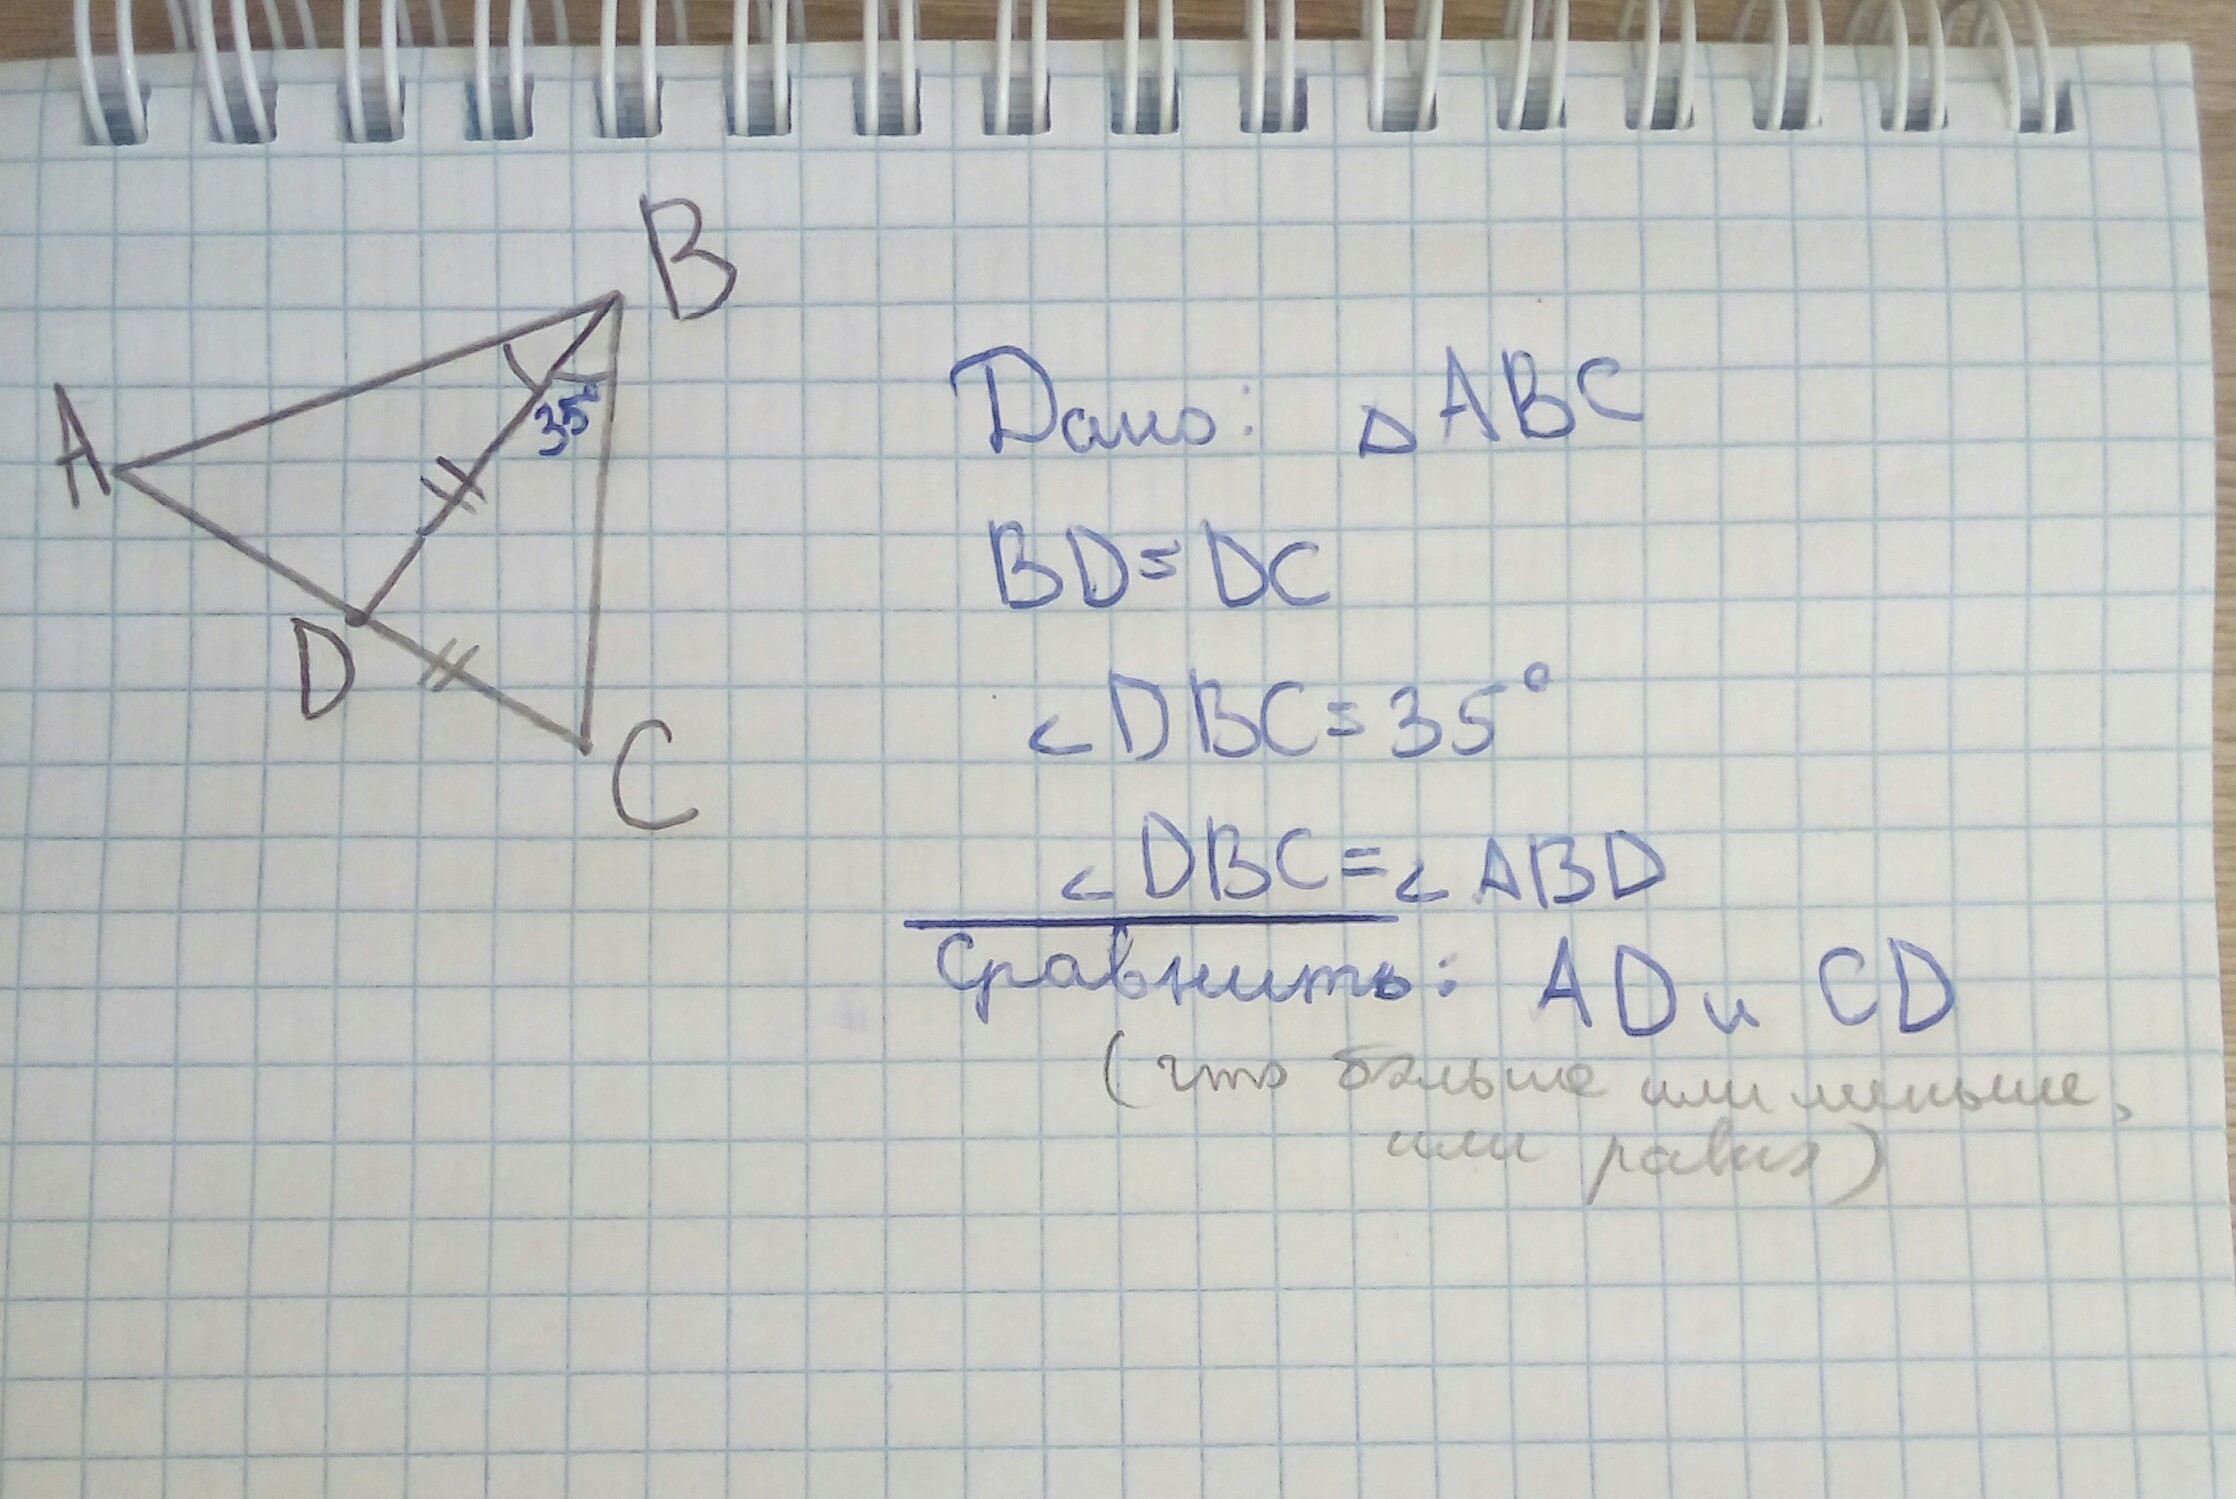 B
A
35°
D
C
Дано: △ABC
BD=DC
∠DBC=35°
∠DBC=∠ABD
Сравнить: AD и CD
(что больше или меньше,
или равны)